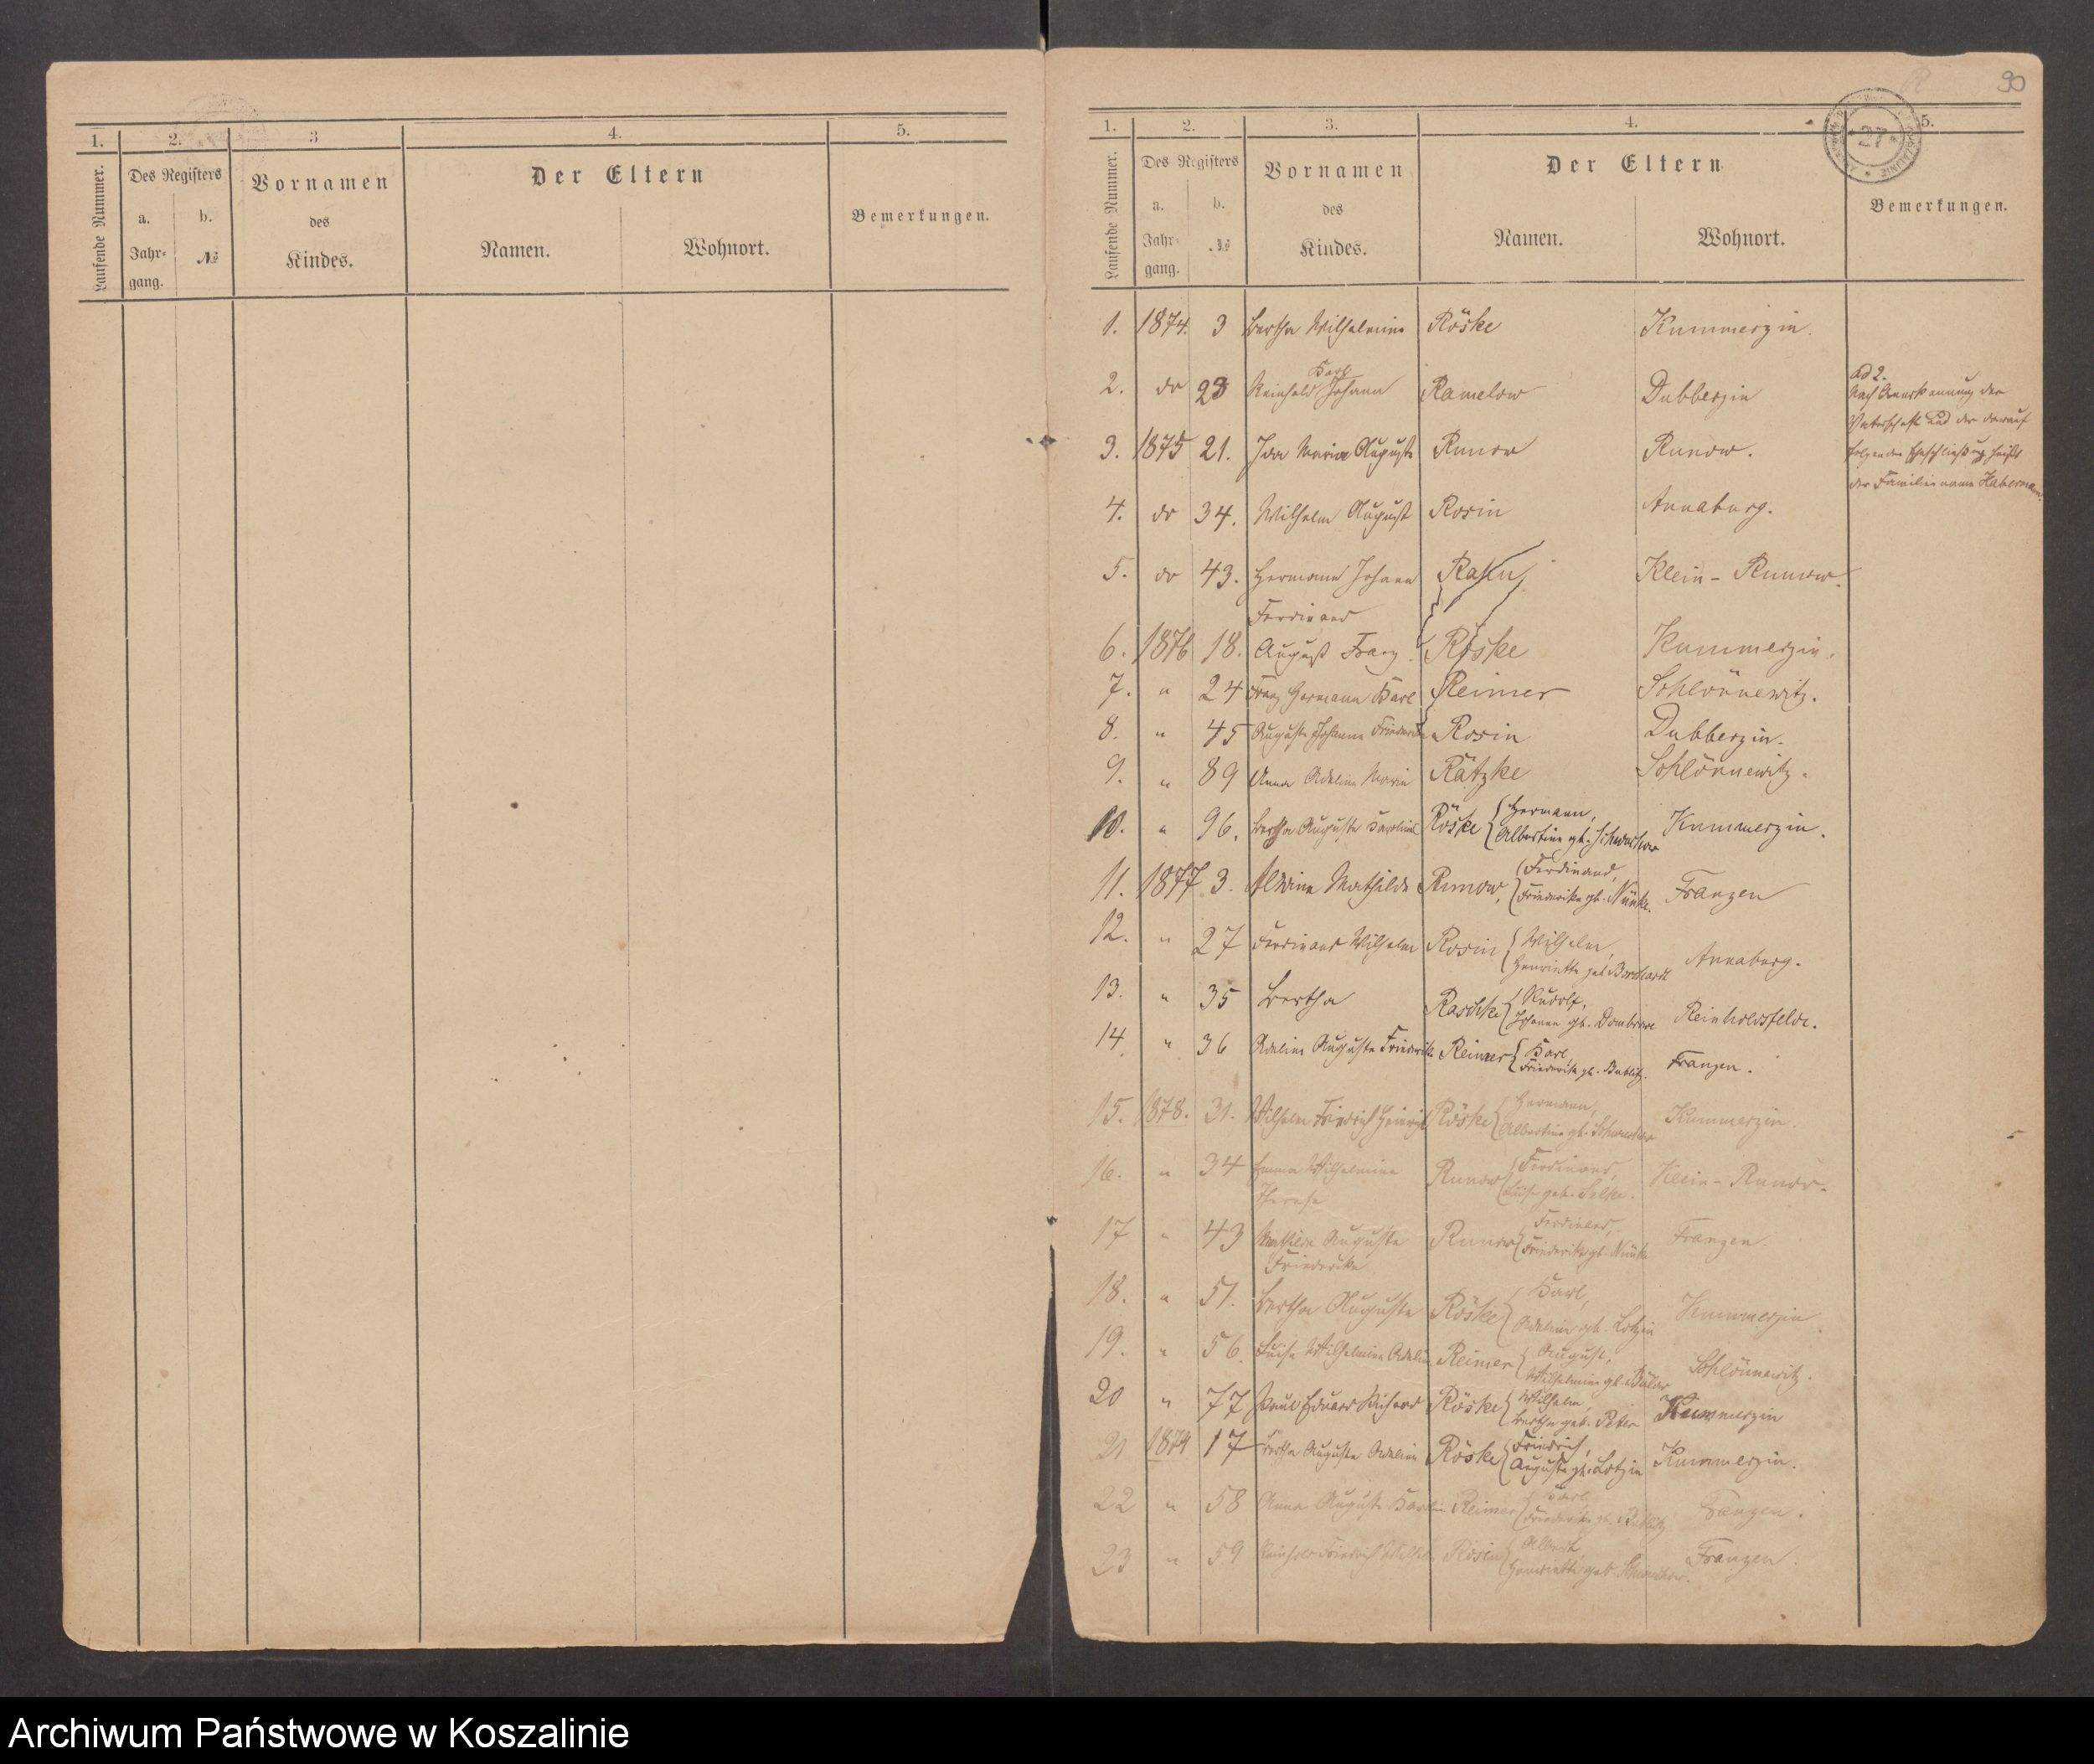 1. 2. 3 4. 5.
Laufende Nummer. Des Registers Vornamen Der Eltern Bemerkungen.
a. b. des
Jahr- № Kindes. Namen. Wohnort.
gang.
90
27
1. 2. 3. 4. 5.
Laufende Nummer. Des Registers Vornamen Der Eltern Bemerkungen.
a. b. des
Jahr- № Kindes. Namen. Wohnort.
gang.
1. 1874. 3 Bertha Wilhelmine Röske Kummerzin.
Karl
2. do 28 Reinhold Johann Ramelow Dubberzin
ad 2.
Nach Anerkennung der
Vaterschaft und der darauf
folgenden Eheschließung heißt
der Familienname Habermann.
3. 1875 21. Ida Marie Auguste Runow Runow.
4. do 34. Wilhelm August Rosin Annaburg.
5. do 43. Hermann Johann Rahn, Klein-Runow.
Ferdinand
6. 1876 18. August Franz Röske Kummerzin.
7. " 24 Franz Hermann Karl Reimer Schlönnewitz.
8. " 45 Auguste Johanne Friederike Rosin Dubberzin.
9. " 89 Anna Adeline Marie Rätzke Schlönnewitz.
10. " 96. Bertha Auguste Karoline Röske { Hermann, Kummerzin.
Albertine gb.
11. 1877 3. Alwine Mathilde Runow, { Ferdinand, Franzen
Friederike gb. Nünke.
12. " 27 Ferdinand Wilhelm Rosin { Wilhelm, Annaburg.
Henriette geb. Borchardt
13. " 35 Bertha Raschke { Rudolf, Reinholdsfelde.
Johanne gb. Dombrowe
14. " 36 Adeline Auguste Friederike Reimer { Karl, Franzen.
Friederike gb. Bublitz.
15. 1878. 31. Wilhelm Friedrich Heinrich Röske { Hermann, Kummerzin.
Albertine gb.
16. " 34 Emma Wilhelmine Runow { Ferdinand, Klein-Runow.
Therese Luise geb. Silke.
17 " 43 Mathilde Auguste Runow { Ferdinand, Franzen.
Friederike Friederike gb. Nünke
18. " 51. Bertha Auguste Röske { Karl, Kummerzin.
Adeline gb. Lotzin
19. " 56. Luise Wilhelmine Adeline Reimer { August, Schlönnewitz.
Wilhelmine gb.
20 " 77 Paul Eduard Richard Röske { Wilhelm, Kummerzin
Bertha geb. Peter
21 1879 17 Bertha Auguste Adeline Röske { Friedrich, Kummerzin.
Auguste gb. Lotzin
22 " 58 Anna Auguste Karoline Reimer { Karl, Franzen.
Friederike gb. Bublitz
23 " 59 Reinhold Friedrich Rosin { Albert, Franzen.
Henriette geb.
Archiwum Państwowe w Koszalinie